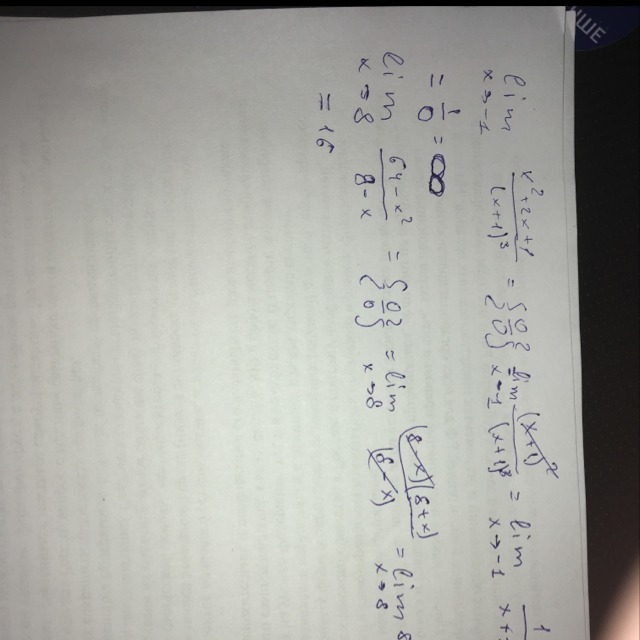 lim x→-1 (x²+2x+1)/(x+1)³ = {0/0} = lim x→-1 (x+1)²/(x+1)³ = lim x→-1 1/x+
= 1/0 = ∞
lim x→8 (64-x²)/(8-x) = {0/0} = lim x→8 (8-x)(8+x)/(8-x) = lim x→8 8
= 16